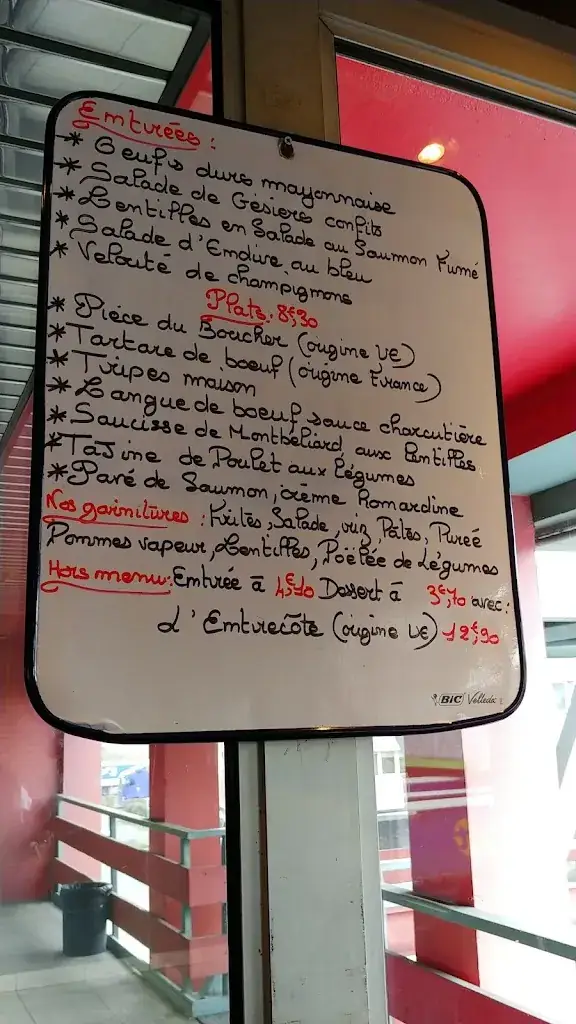 Entrées :
* Oeufs durs mayonnaise
* Salade de Gésiers confits
* Lentilles en Salade au Saumon Fumé
* Salade d'Endive au bleu
* Velouté de champignons
Plats : 8€,30
* Pièce du Boucher (origine UE)
* Tartare de boeuf (origine France)
* Tripes maison
* Langue de boeuf sauce charcutière
* Saucisse de Montbéliard aux Lentilles
* Tajine de Poulet aux légumes
* Pavé de Saumon, crème Homardine
Nos garnitures : Frites, Salade, riz, Pâtes, Pureé
Pommes vapeur, Lentilles, Poëlée de Légumes
Hors menu : Entrée à 4€,10 Dessert à 3€,70 avec :
d'Entrecôte (origine UE) 12€,90
BIC Velleda